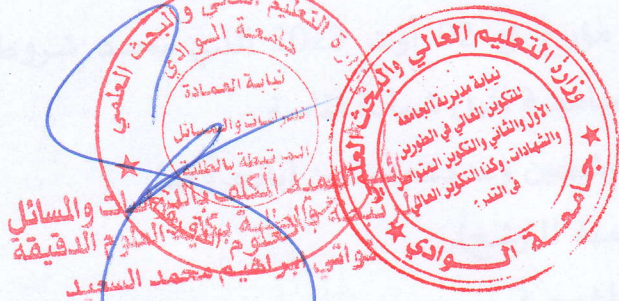 وزارة التعليم العالي والبحث العلمي
جامعة الوادي
نيابة العمادة
للدراسات والمسائل
المرتبطة بالطلبة
وزارة التعليم العالي والبحث العلمي
جامعة الوادي
نيابة مديرية الجامعة
للتكوين العالي في الطورين
الأول والثاني والتكوين المتواصل
والشهادات، وكذا التكوين العالي
في التدرج
العميد المكلف بالدراسات والمسائل
العلوم الدقيقة
محمد السعيد